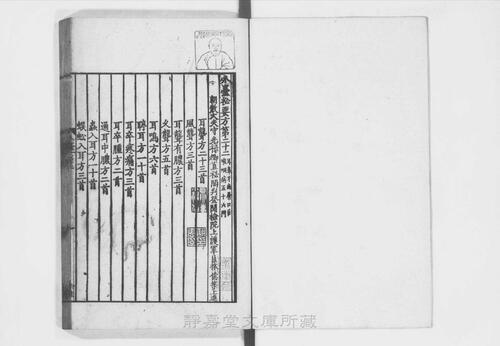 外臺秘要方第二十二
朝散大夫守光祿卿直祕閣判登聞檢院上護軍臣林億等上進
耳聾方二十三首
風聾方三首
耳聾有膿方三首
久聾方五首
耳鳴方六首
聤耳方一十首
耳卒疼痛方三首
耳卒腫方二首
通耳中膿方二首
蟲入耳方一十首
蜈蚣入耳方三首
静嘉堂文庫所藏